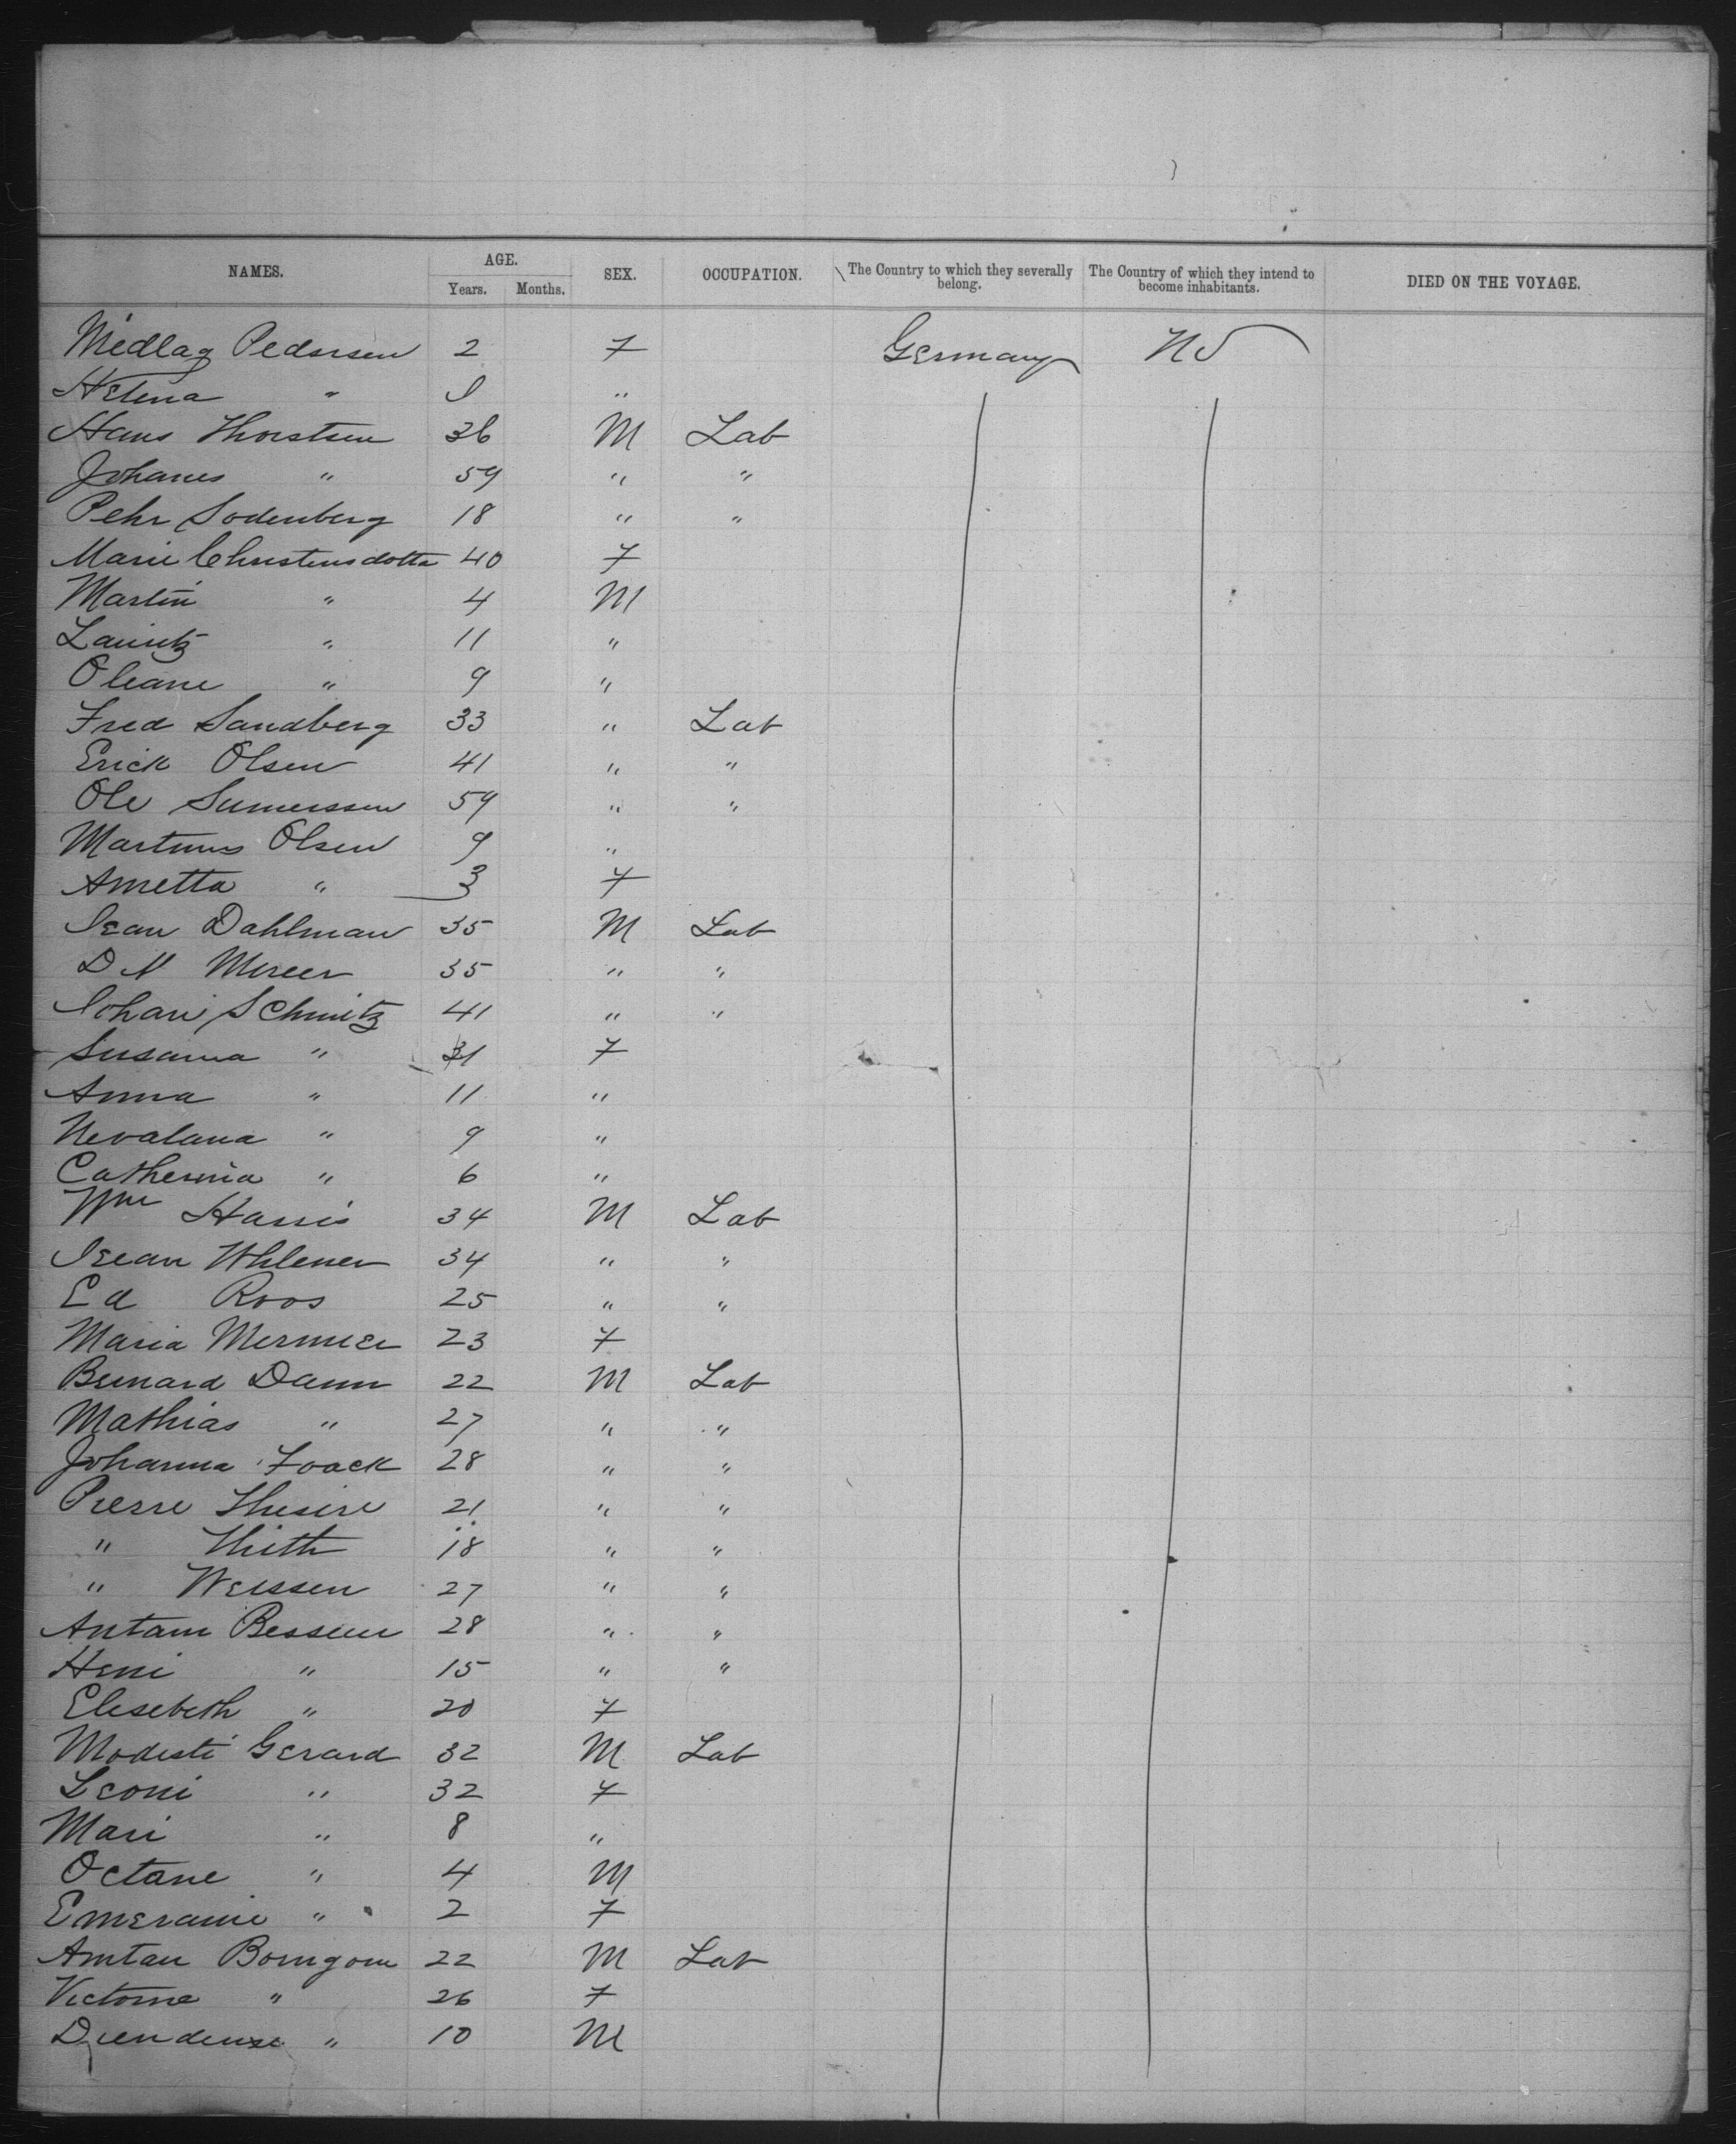 NAMES. AGE. SEX. OCCUPATION. The Country to which they severally belong. The Country of which they intend to become inhabitants. DIED ON THE VOYAGE.
Years. Months.
Medlag Pedersen 2 F Germany US
Helena " "
Hans Thorstsen 36 M Lab
Johanes " 59 " "
Pehr Sodenberg 18 " "
Marie Christensdotta 40 F
Martin " 4 M
Lauritz " 11 "
Oleane " 9 "
Fred Sandberg 33 " Lab
Erick Olsen 41 " "
Ole 59 " "
Martinus Olsen 9 "
Ametta " 3 F
Jean Dahlman 35 M Lab
D N Mercer 35 " "
Johan Schmitz 41 " "
Susanna " 31 F
Anna " 11 "
Nevalana " 9 "
Catherina " 6 "
Wm Harris 34 M Lab
Whlener 34 " "
Ed Roos 25 " "
Maria 23 F
Bernard Damm 22 M Lab
Mathias " 27 " "
Johanna Foack 28 " "
Pierre 21 " "
" Thith 18 " "
" Weissen 27 " "
Antam 28 " "
Heni " 15 " "
Elesebeth " 20 F
Modesti Gerard 32 M Lab
Leoni " 32 F
Mari " 8 "
Octave " 4 M
Emeranie " 2 F
22 M Lab
Victorine " 26 F
" 10 M